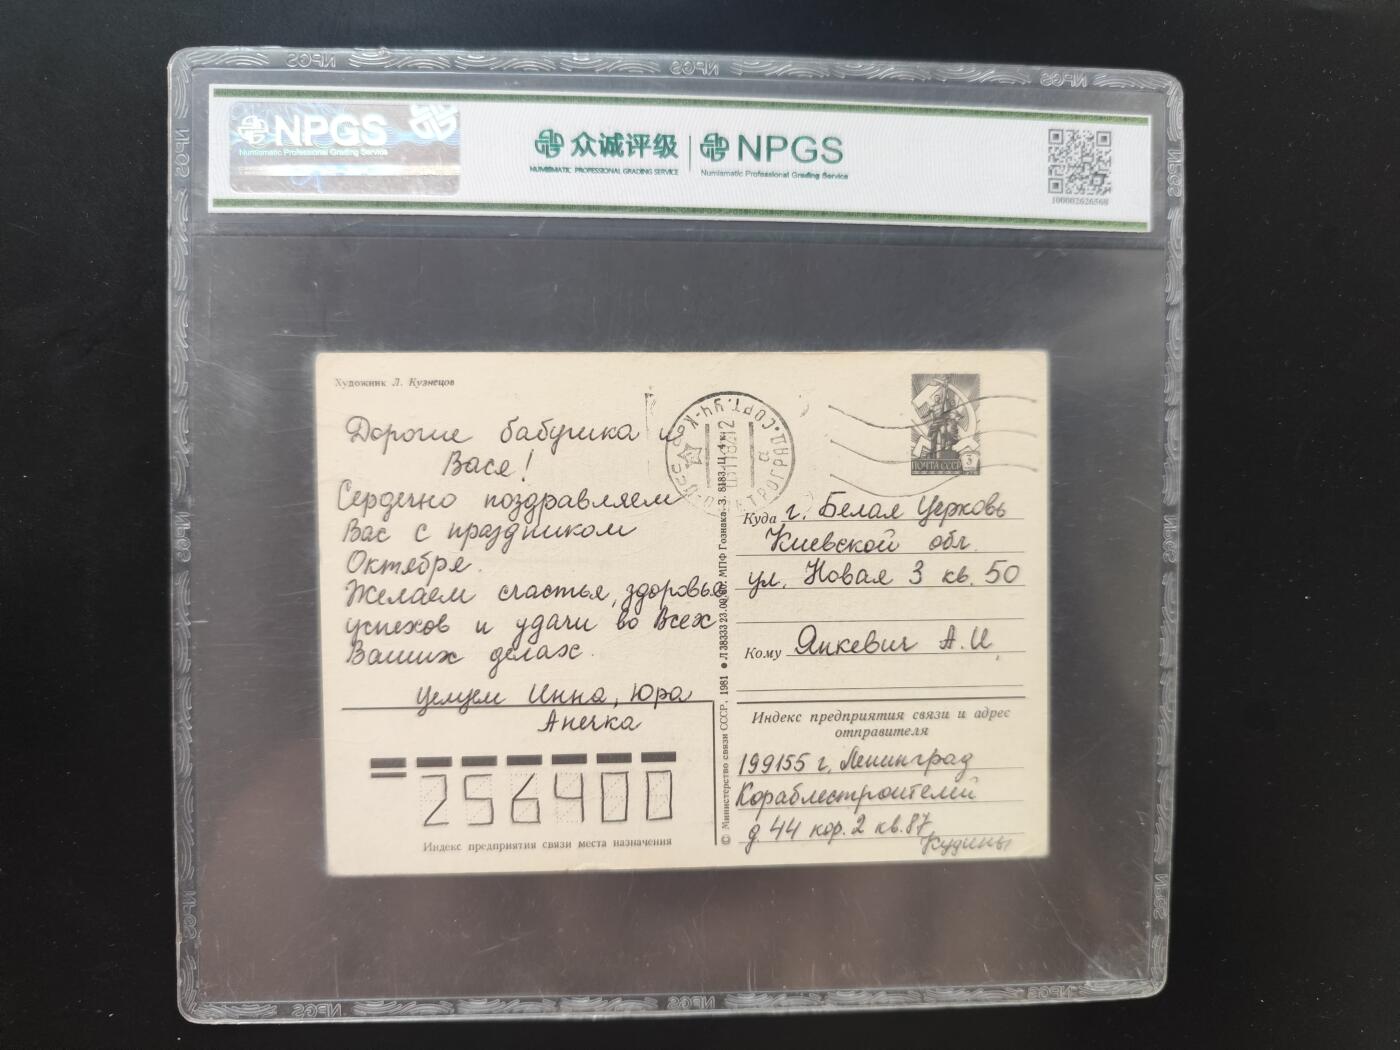 NPGS
Numismatic Professional Grading Service
众诚评级
NUMISMATIC PROFESSIONAL GRADING SERVICE
NPGS
Numismatic Professional Grading Service
100002626568
Художник Л. Кузнецов
Дорогие бабушка и
Вася!
Сердечно поздравляем
Вас с праздником
Октября.
Желаем счастья, здоровья
успехов и удачи во Всех
Ваших делах.
целуем Инна, Юра
Анечка
256400
Индекс предприятия связи места назначения
© Министерство связи СССР, 1981 ● Л 38333 23.09.80. МПФ Гознака. З. 8183. Ц. 4 к.
ПОЧТА СССР 3
Куда г. Белая Церковь
Киевской обл.
ул. Новая 3 кв. 50
Кому Янкевич А.И.
Индекс предприятия связи и адрес
отправителя
199155 г. Ленинград
Кораблестроителей
д. 44 кор. 2 кв. 87
Кудины